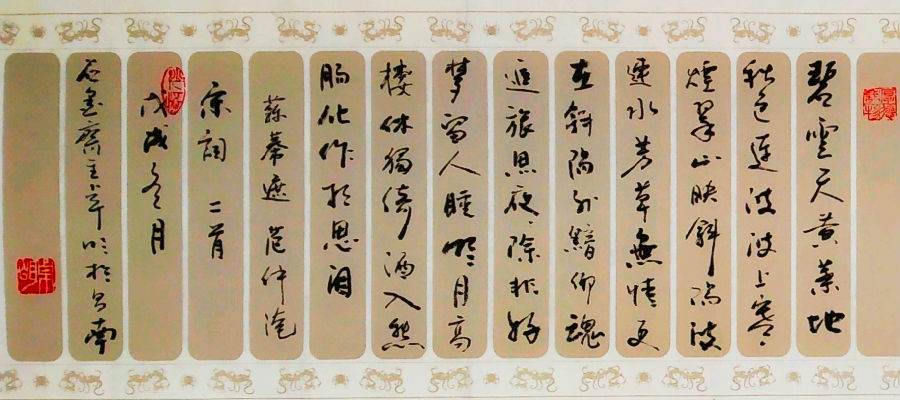 碧雲天黄葉地
秋色連波波上寒〻
煙翠山映斜陽
水芳草無情更
在斜陽外黯鄉魂
追旅思夜〻除非好
夢留人睡明月高
樓休獨倚酒入愁
腸化作相思淚
蘇幕遮范仲淹
宋詞二首
戊戌冬月
石金齋主卓明於南